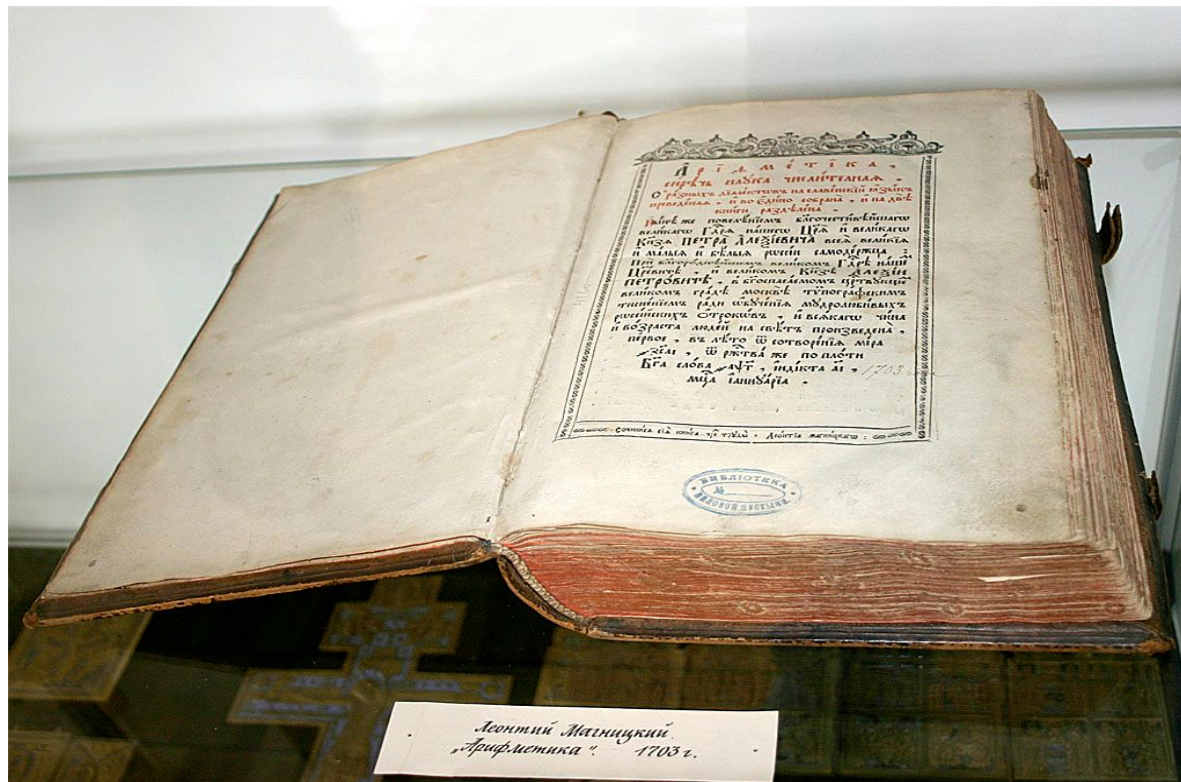 А҆ріѳме́тіка,
сирѣ́чь наꙋ́ка числи́телная.
С̾ ра́зныхъ дїале́ктѡвъ на славе́нскїй ѧ҆зы́къ
преведе́ная, и҆ во є҆ди́но собрана̀, и҆ на двѣ̀
кни́ги раздѣле́на.
Ны́нѣ же повелѣ́нїемъ благочести́вѣйшагѡ
вели́кагѡ Гдⷭ҇рѧ на́шегѡ Цр҃ѧ̀ и҆ вели́кагѡ
Кн҃зѧ ПЕТРА̀ А҆ЛЕѮІ́ЕВИЧА всеѧ̀ вели́кїѧ
и҆ ма́лыѧ и҆ бѣ́лыѧ рѡссі́и самоде́ржца:
При бл҃горо́днѣйшемъ вели́комъ Гдⷭ҇рѣ на́шемъ
Цр҃е́вичѣ, и҆ вели́комъ Кн҃зѣ А҆ЛЕѮІ́И
ПЕТРО́ВИЧѢ, в̾ бг҃оспаса́емомъ ца́рствꙋющемъ
вели́комъ гра́дѣ москвѣ̀ тѷпогра́фскимъ
тисне́нїемъ ра́ди ѡ҆бꙋче́нїѧ мꙋдролюби́выхъ
рѡссі́йскихъ ѻ҆́трокѡвъ, и҆ всѧ́кагѡ чи́на
и҆ во́зраста люде́й на свѣ́тъ произведена̀,
пе́рвое, въ лѣ́то ѿ сотворе́нїѧ мі́ра
҂зсаі, ѿ рж҇тва̀ же по пло́ти
Бг҃а сло́ва ҂аѱг, і҆нді́кта аі, 1703
мцⷭ҇а і҆аннꙋа́рїа.
Сочини́сѧ сїѧ̀ кни́га чрез̾ трꙋды̀ Лео́нтїа магни́цкагѡ:
БИБЛІОТЕКА
№
Леонтий Магницкий
„Арифметика“. 1703 г.